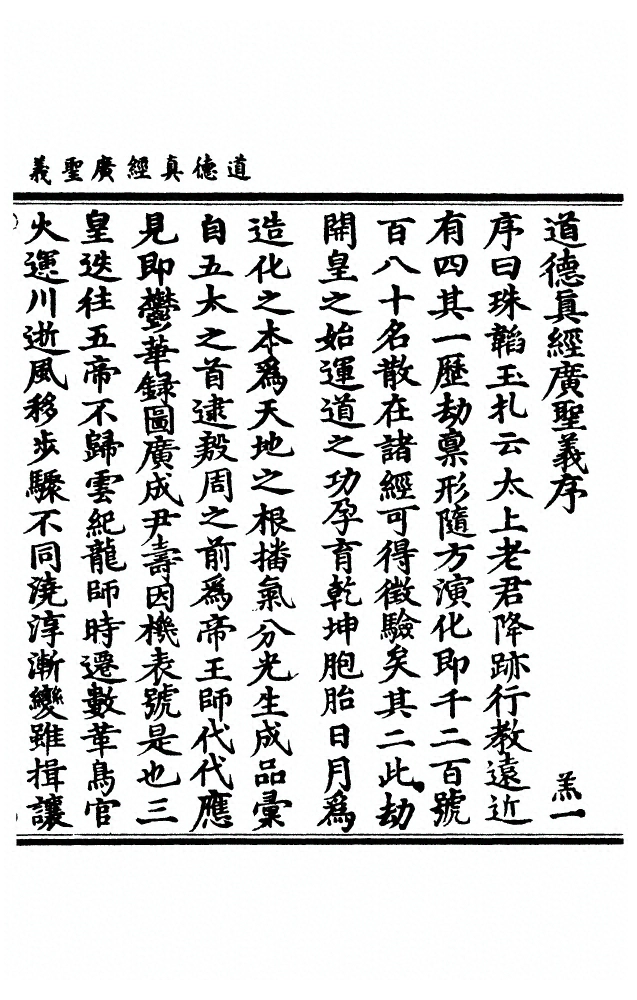 道德真經廣聖義
道德眞經廣聖義序 羔一
序曰珠韜玉札云太上老君降跡行教遠近
有四其一歷劫稟形隨方演化即千二百號
百八十名散在諸經可得徵驗矣其二此劫
開皇之始運道之功孕育乾坤胞胎日月爲
造化之本爲天地之根播氣分光生成品彙
自五太之首逮殷周之前爲帝王師代代應
見即鬱華録圖廣成尹壽因機表號是也三
皇迭往五帝不歸雲紀龍師時遷數革鳥官
火運川逝風移步驟不同澆淳漸變雖揖讓